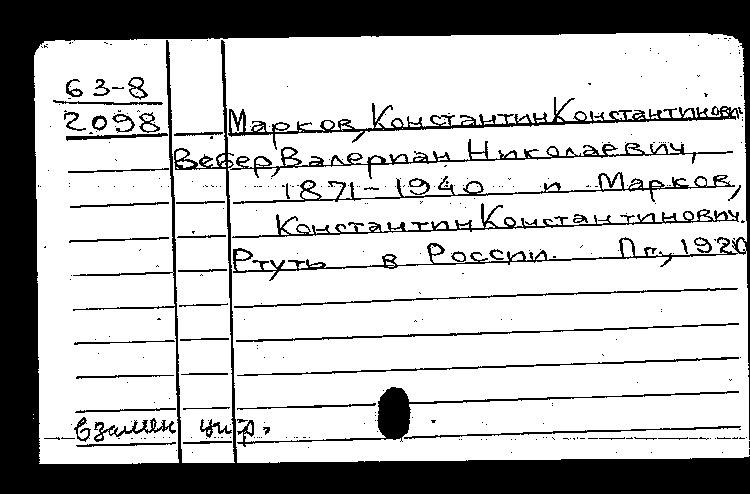 63-8
2098
Марков, Константин Константинович
Вебер, Валериан Николаевич,
1871-1940 и Марков,
Константин Константинович.
Ртуть в России. Пг., 1920
взамен шифр.